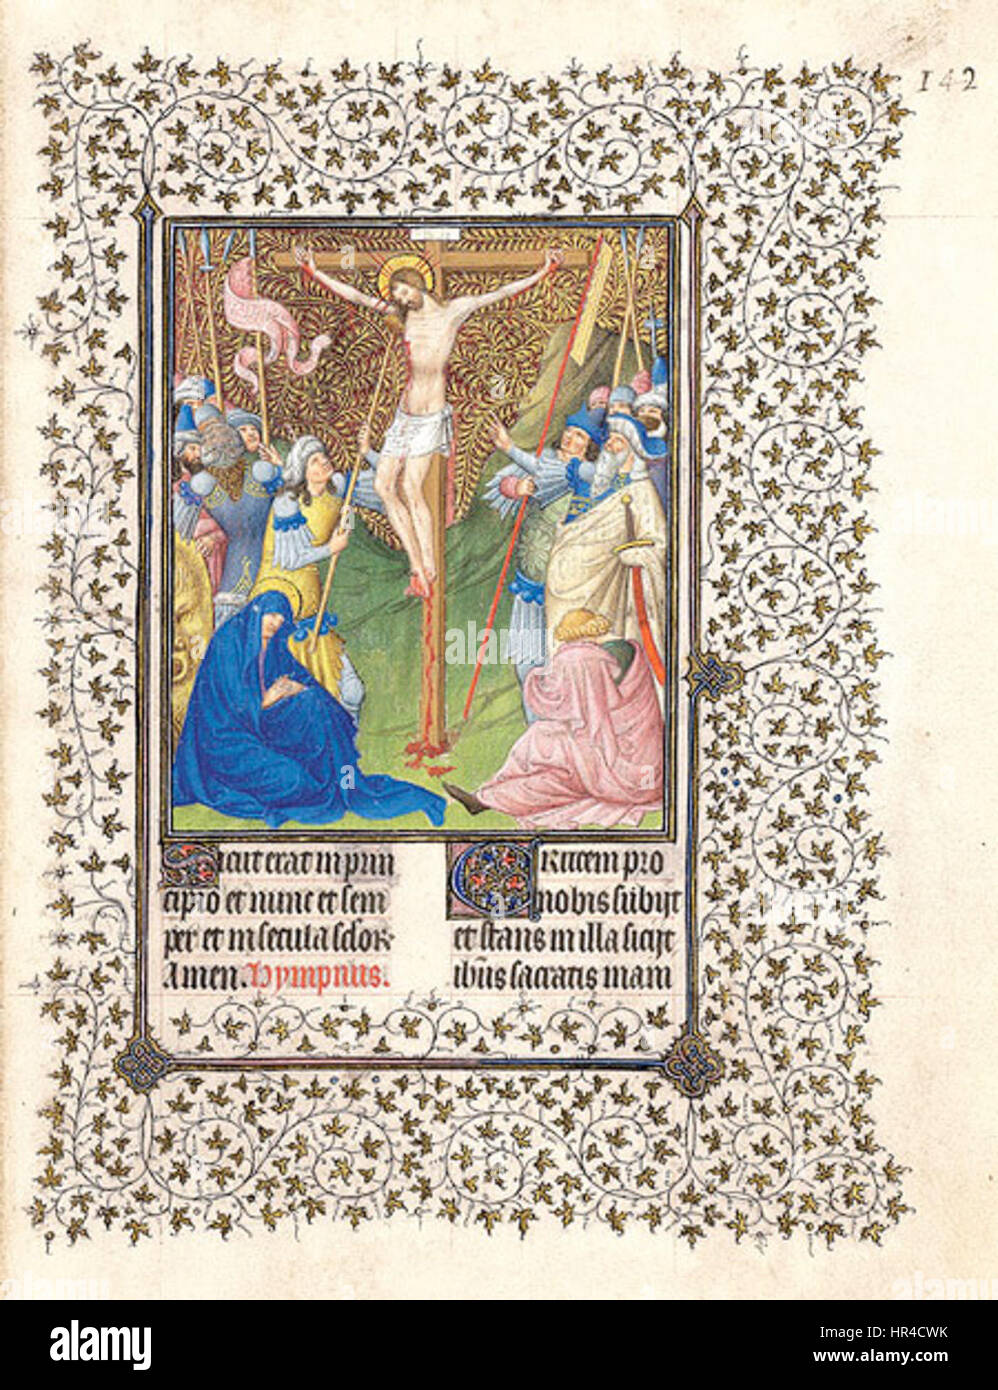 142
Sicut erat in prin
cipio et nunc et sem
per et in secula sclor
Amen. Hympnus.
CRucem pro
nobis subijt
et stans in illa sicijt
ihus sacratis mani
alamy
HR4CWK
www.alamy.com